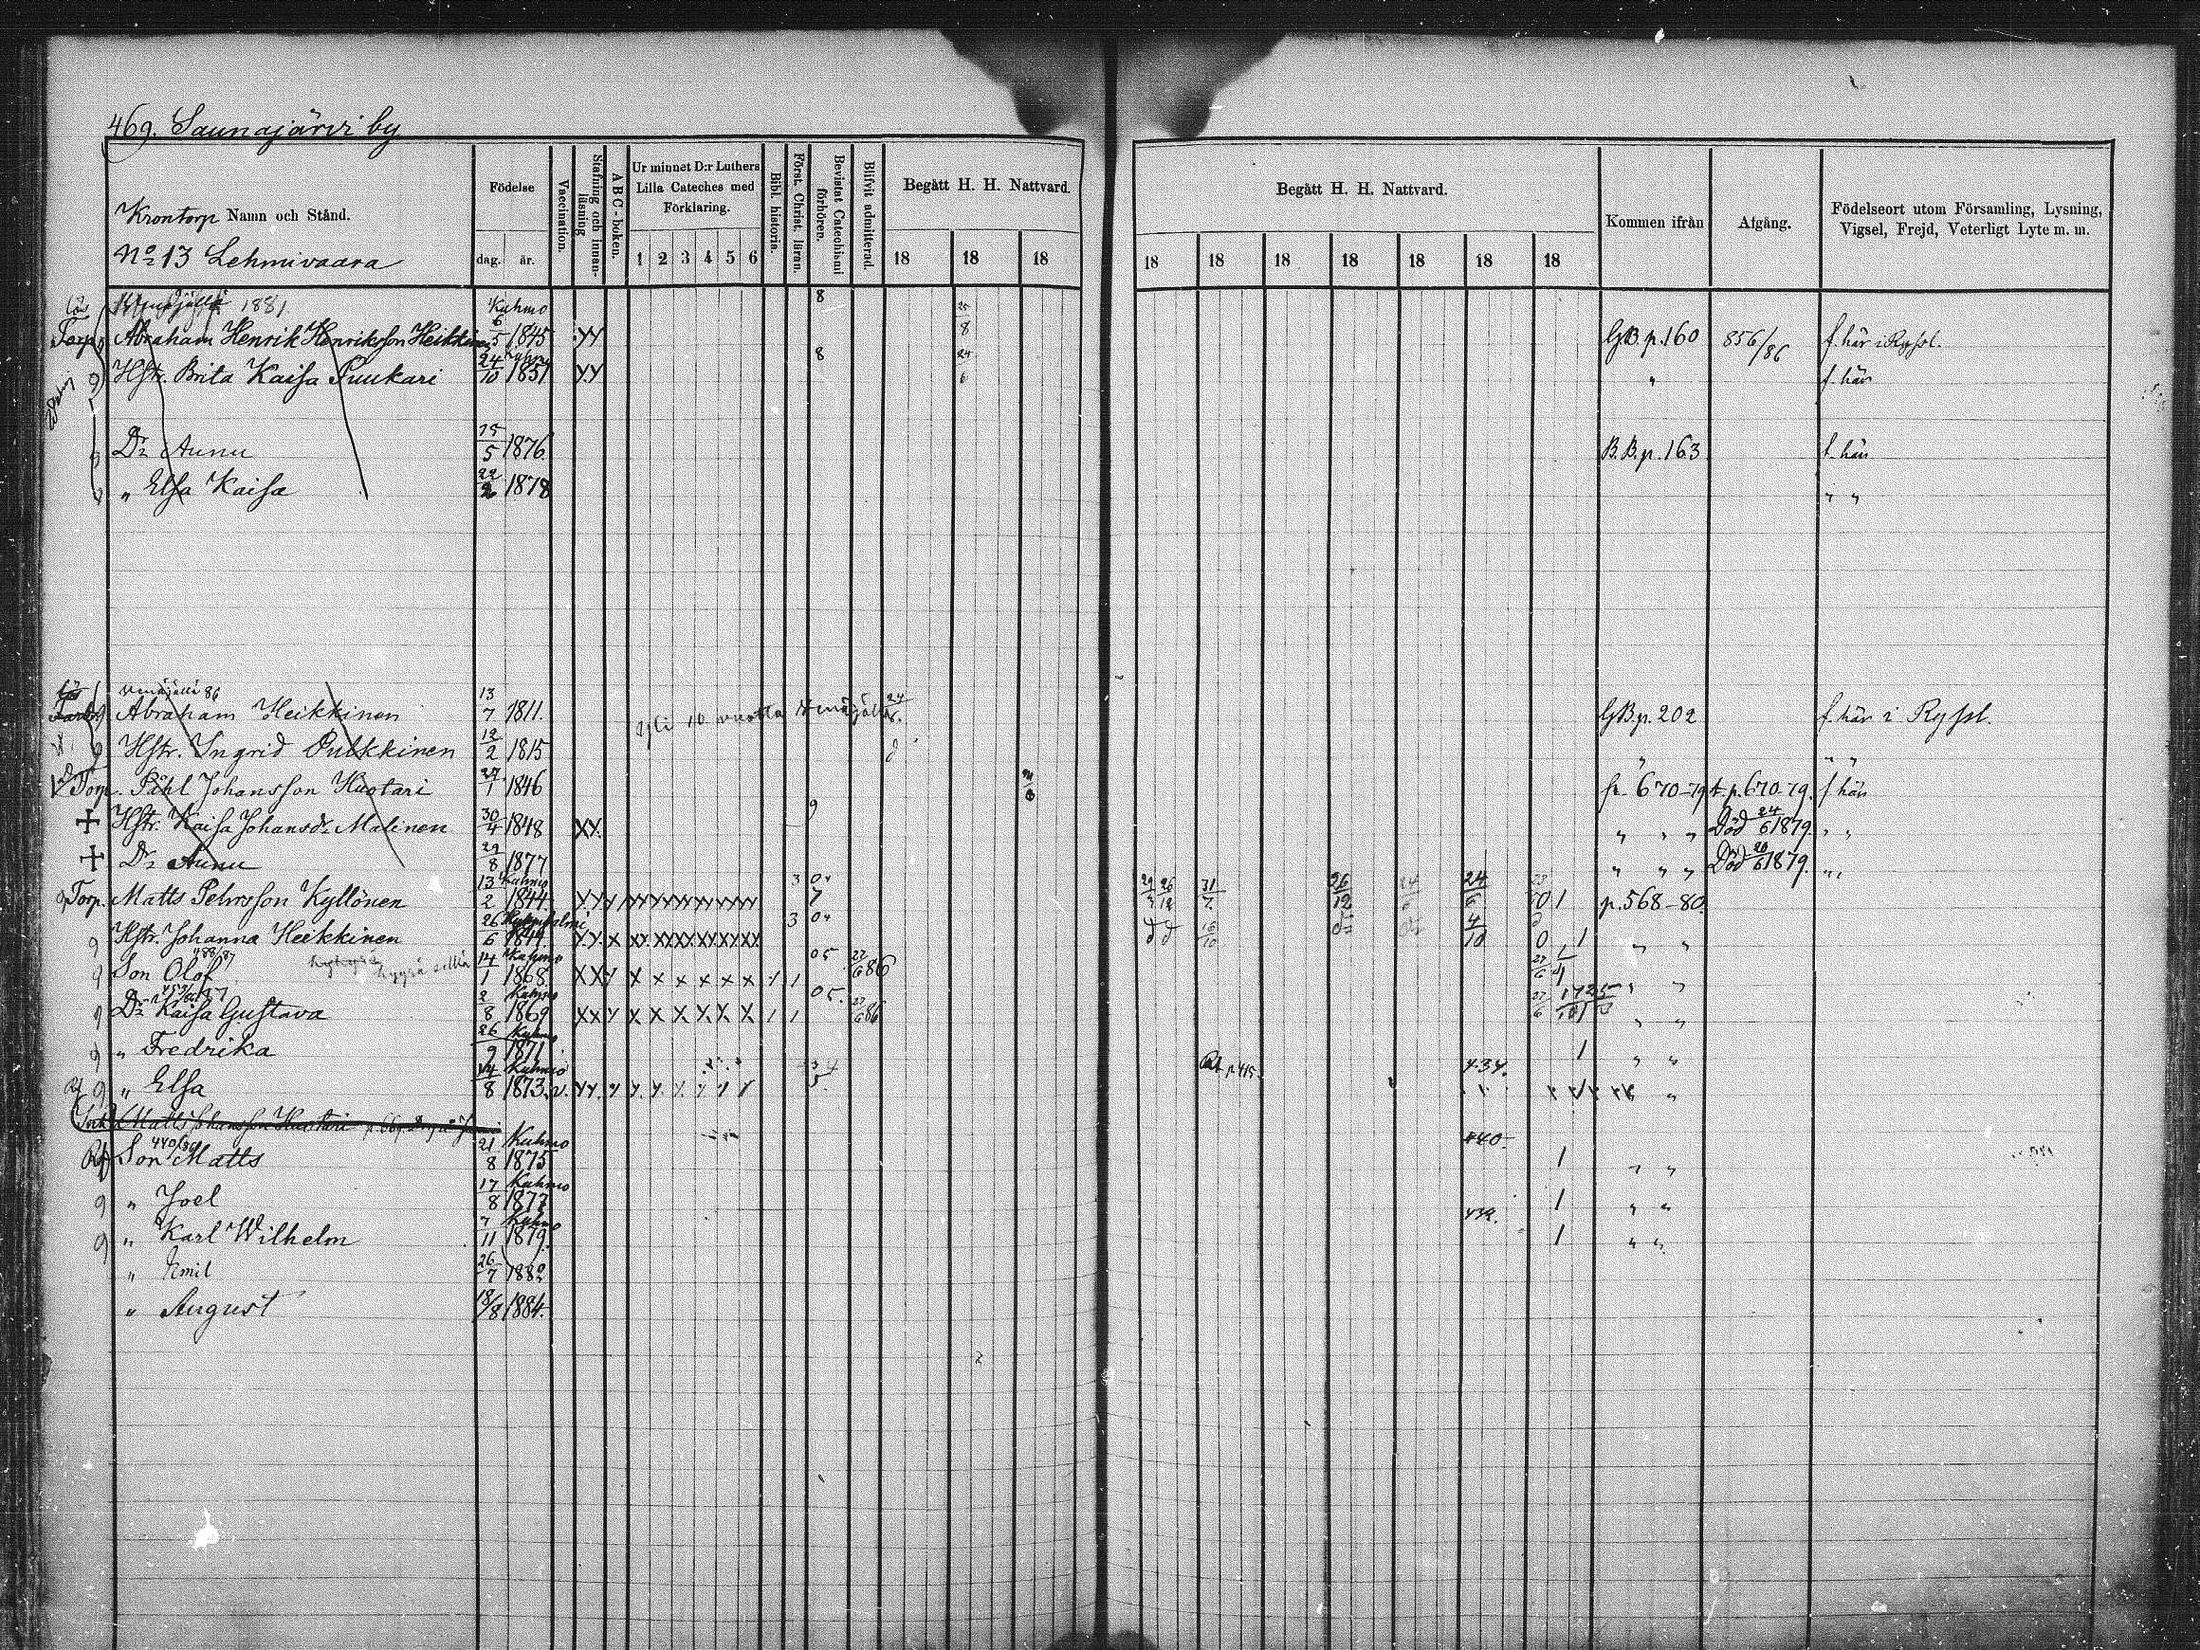 469. Saunajärvi by
Krontorp Namn och Stånd.
No 13 Lehmivaara
Födelse
dag. år.
Vaccination.
Stafning och innan-läsning
A B C-boken.
Ur minnet D:r Luthers Lilla Cateches med Förklaring.
1 2 3 4 5 6
Bibl. historia.
Först. Christ. läran.
Bevistat Catechismi förhören.
Blifvit admitterad.
Begått H. H. Nattvard.
18 18 18
Begått H. H. Nattvard.
18 18 18 18 18 18 18
Kommen ifrån
Afgång.
Födelseort utom Församling, Lysning, Vigsel, Frejd, Veterligt Lyte m. m.
1881 Kuhmo 8
Torp. Abraham Henrik Henriksson Heikkinen 6/5 1845 GB. p. 160 856/86 f. här i Ryssl.
Hstr. Brita Kaisa Puukari 24/10 1851 8 " f. här
Dr Aunu 15/5 1876. B.B. p. 163 f. här
" Elsa Kaisa 22/2 1878 " "
Venäjällä 86
Abraham Heikkinen 13/7 1811. yli 10 vuotta Venäjällä GB. p. 202 f. här i Ryssl.
Hstr. Ingrid Pulkkinen 12/2 1815 " " "
Torp. Påhl Johansson Huotari 27/1 1846 fr 670-79 t. p. 670-79. f här
Hstr. Kaisa Johansdr Malinen 30/4 1848 9 " " " Död 24/6 1879. " "
Dr Aunu 29/8 1877 " " " Död 20/6 1879. " "
Torp. Matts Pehrsson Kyllönen 13/2 Kuhmo 1844 p. 568-80.
Hstr. Johanna Heikkinen 26/6 1844 " "
Son Olof 14/1 Kuhmo 1868 " "
Dr Kaisa Gustava 2/8 Kuhmo 1869 " "
" Fredrika 26/9 Kuhmo 1871 " "
" Elsa 14/8 Kuhmo 1873 " "
Matts Johansson Huotari
Son Matts 21/8 Kuhmo 1875 " "
" Joel 17/8 Kuhmo 1877 " "
" Karl Wilhelm 7/11 Kuhmo 1879. " "
" Emil 26/7 1882
" August 18/8 1884.